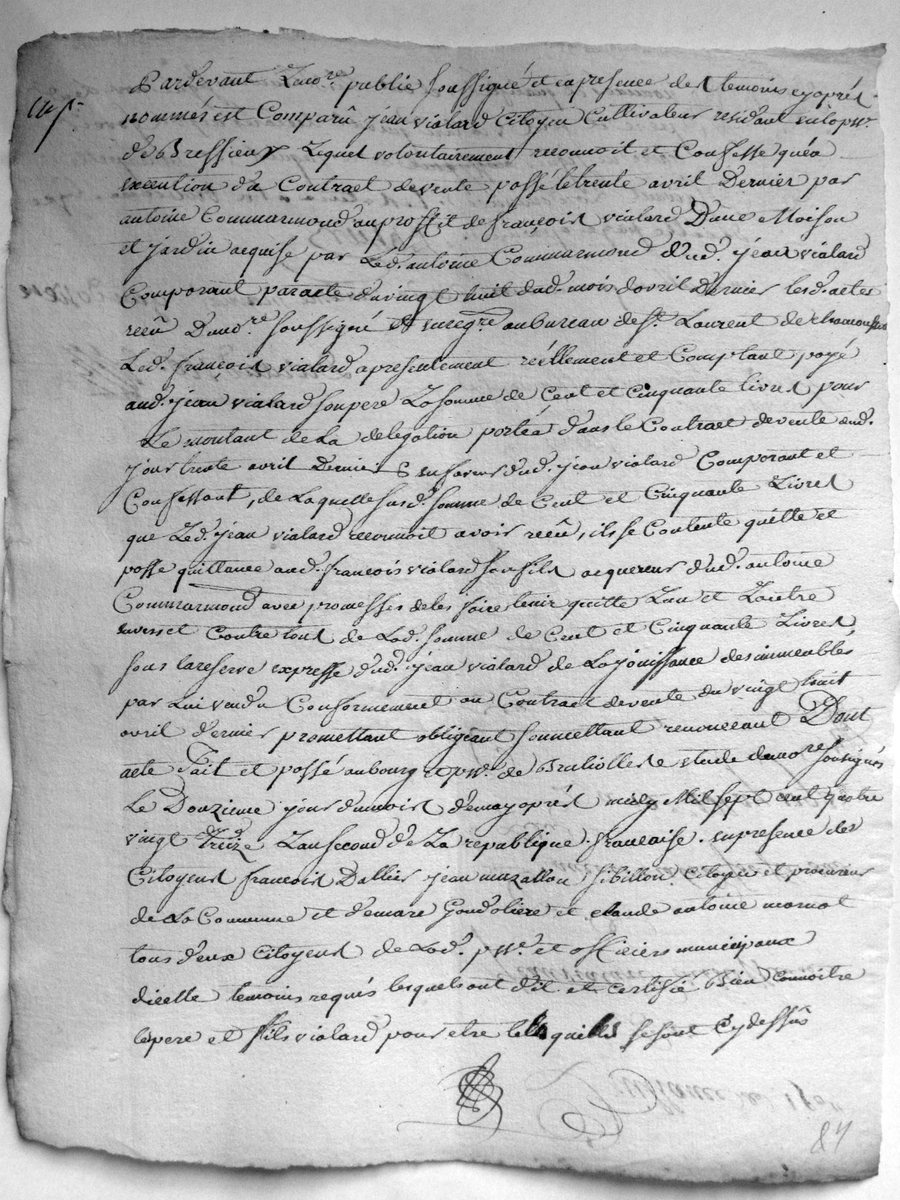 Pardevant Le no.re public soussigné et en presence des temoins cy apres
nommés est Comparû jean vialard Citoyen Cultivateur residant en la p.sse
de Bressieux Lequel volontairement reconnoit et Confesse qu'en
execution du Contract de vente passé le trente avril Dernier par
antoine Commarmond au proffit de françois vialard D'une Maison
et jardin acquise par Led. antoine Commarmond dud. jean vialard
Comparant par acte du vingt huit dud. mois d'avril Dernier lesd. actes
recû Du no.re soussigné et enreg.ré au bureau de s.t Laurent de chamousset
Led. françois vialard a presentement réellement et Comptant payé
aud. jean vialard son pere La somme de Cent et Cinquante livres pour
Le montant de La delegation portée dans le Contract de vente dud.
jour trente avril Dernier en faveur dud. jean vialard Comparant et
Confessant, de Laquelle susd. somme de Cent et Cinquante Livres
que Led. jean vialard reconnoit avoir recû, il se Contente quitte et
passe quittance aud. francois vialard son fils acquereur dud. antoine
Commarmond avec promesses de les faire tenir quitte L'un et L'autre
envers et Contre tous de Lad. somme de Cent et Cinquante Livres
sous la reserve expresse dud. jean vialard de La jouissance des immeubles
par Lui vendu Conformement au Contract de vente du vingt huit
avril dernier promettant obligeant soumettant renonceant Dont
acte Fait et passé au bourg et p.sse de Brullioles etude du no.re soussigné
Le Douzieme jour du mois de may après midy Mil sept cent quatre
vingt treize L'an second de La republique francaise. en presence des
Citoyens francois Dallier jean mazallon Sibillon Citoyen et procureur
de La Commune et demare Gondoliere et claude antoine mornat
tous deux Citoyens de Lad. p.sse et officiers municipaux
dicelle temoins requis lesquels ont dit et certifié Bien Connoitre
les pere et fils vialard pour etre tels qu'ils se sont Cy dessus
84